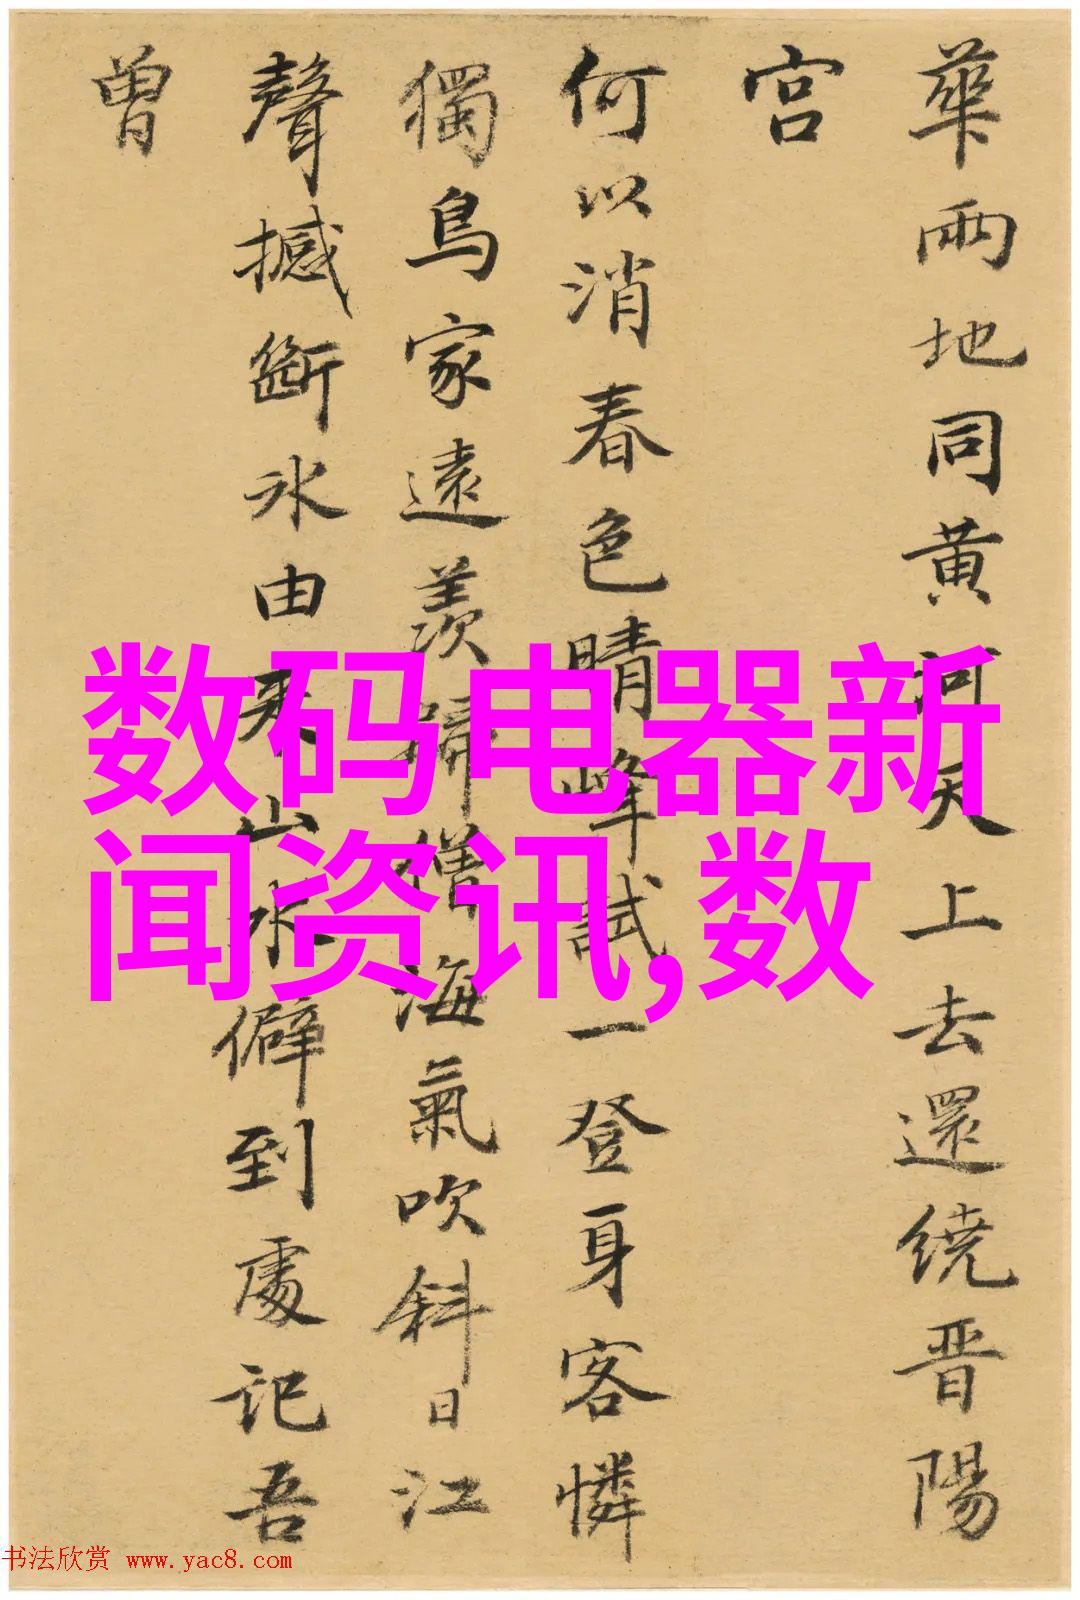 華兩地同黄河天上去還繞晋陽
宫
何以消春色晴峰試一登身客憐
獨鳥家遠羨歸僧海氣吹斜日江
聲撼斷冰由来山水癖到處記吾
曾
数码电器新
闻资讯,数
书法欣赏 www.yac8.com